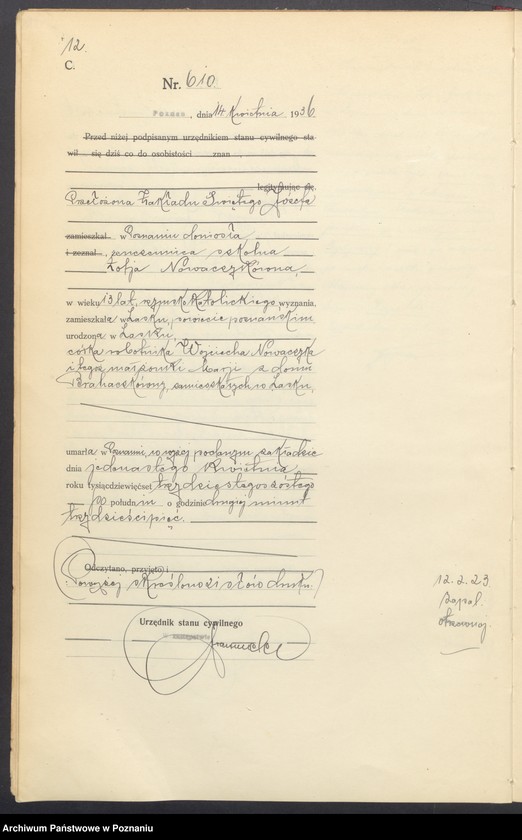 12.
C.
Nr. 610
Poznań, dnia 14 Kwietnia 1936
Przed niżej podpisanym urzędnikiem stanu cywilnego sta
wił się dziś co do osobistości znan
legitymując się
Przełożona Zakładu Świętego Józefa
zamieszkał w Poznaniu doniosła
i zeznał, że uczennica szkolna
Zofja Nowaczykówna,
w wieku 13 lat, rzymsko Katolickiego wyznania,
zamieszkała w Lasku, powiecie poznańskim
urodzona w Lasku
córka robotnika Wojciecha Nowaczyka
i tegoż małżonki Marji z domu
zamieszkałych w Lasku,
umarła w Poznaniu, w wyżej podanym zakładzie
dnia jedenastego Kwietnia
roku tysiącdziewięćset trzydziestego szóstego
po południu o godzinie drugiej minut
trzydzieścipięć.
Odczytano, przyjęto i
Powyżej skreślono słów druku.
Urzędnik stanu cywilnego
w zastępstwie
12.2.23
Archiwum Państwowe w Poznaniu